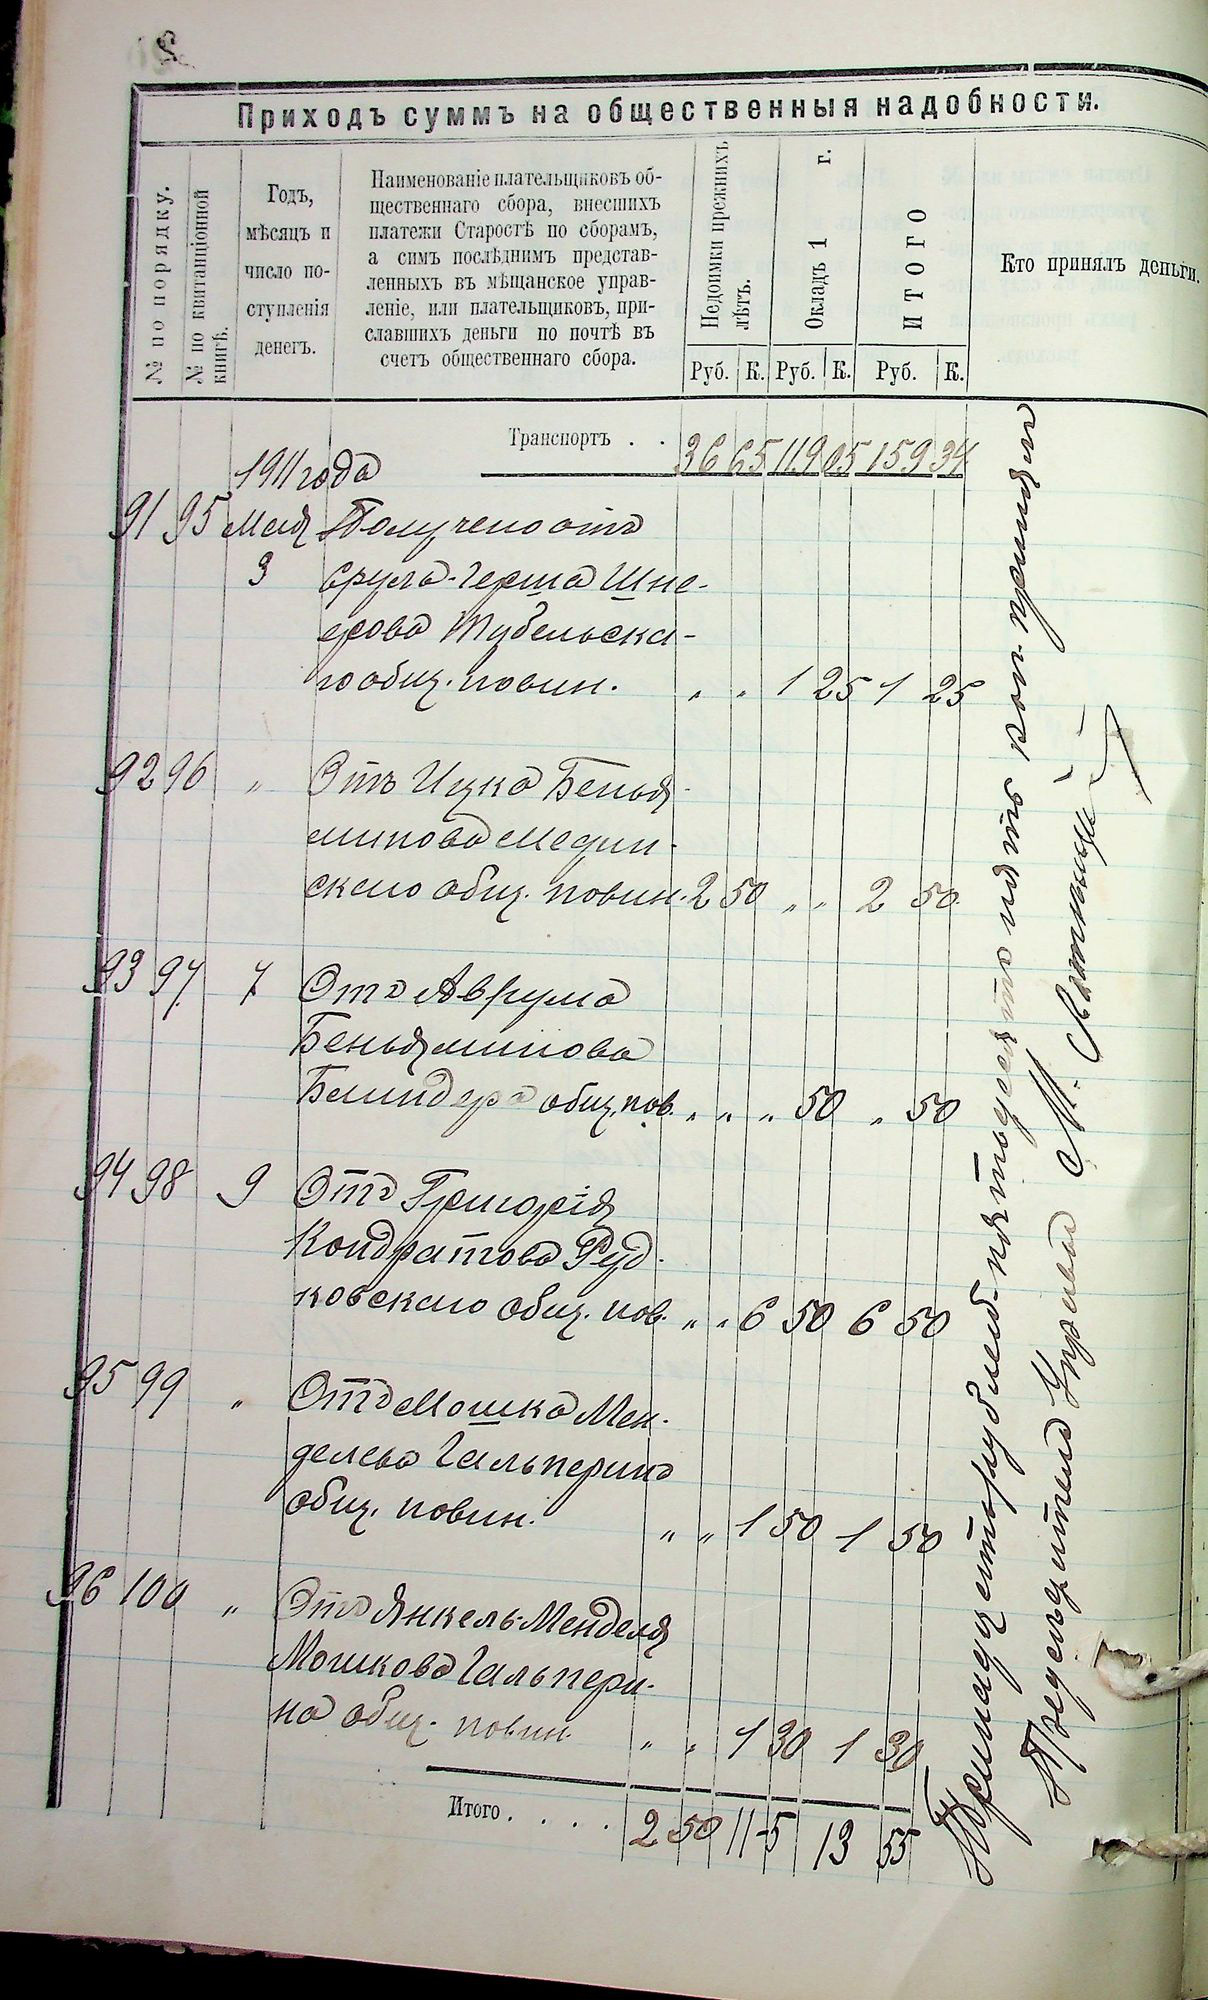 Приходъ суммъ на общественныя надобности.
№ по порядку.
№ по квитанціонной
книгѣ.
Годъ,
мѣсяцъ и
число по-
ступленія
денегъ.
Наименованіе плательщиковъ об-
щественнаго сбора, внесшихъ
платежи Старостѣ по сборамъ,
а симъ послѣднимъ представ-
ленныхъ въ мѣщанское управ-
леніе, или плательщиковъ, при-
славшихъ деньги по почтѣ въ
счетъ общественнаго сбора.
Недоимки прежнихъ
лѣтъ.
Окладъ 1 г.
ИТОГО
Кто принялъ деньги.
Руб. К. Руб. К. Руб. К.
Транспортъ . . 36 65 119 05 159 34
1911 года
91 95 Мая Получено отъ
3 Срула-Герша Шне-
ерова Тубельска-
го общ. повин. „ „ 1 25 1 25
92 96 „ Отъ Ицка Бенья-
минова Медин-
скаго общ. повин. 2 50 „ „ 2 50
93 97 7 Отъ Аврума
Беньяминова
общ. пов. „ „ „ 50 „ 50
94 98 9 Отъ Григорія
Кондратова Руд-
ковскаго общ. пов. „ „ 6 50 6 50
95 99 „ Отъ Мошка Мен-
делева Гальперина
общ. повин. „ „ 1 50 1 50
96 100 „ Отъ Янкель-Менделя
Мошкова Гальпери-
на общ. повин. „ „ 1 30 1 30
Итого. . . . . 2 50 11 5 13 55
Тринадцать рублей пятьдесятъ пять коп. принялъ
Предсѣдатель Управы М.